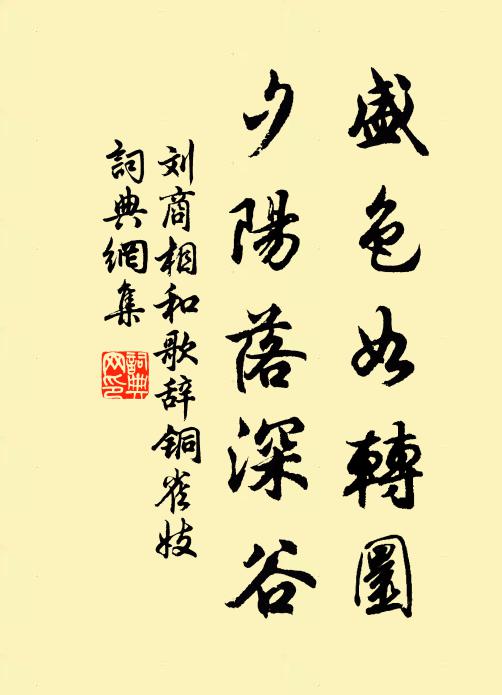 盛色如轉圜
夕陽落深谷
刘商相和歌辞铜雀妓
詞典網集
詞典
网印